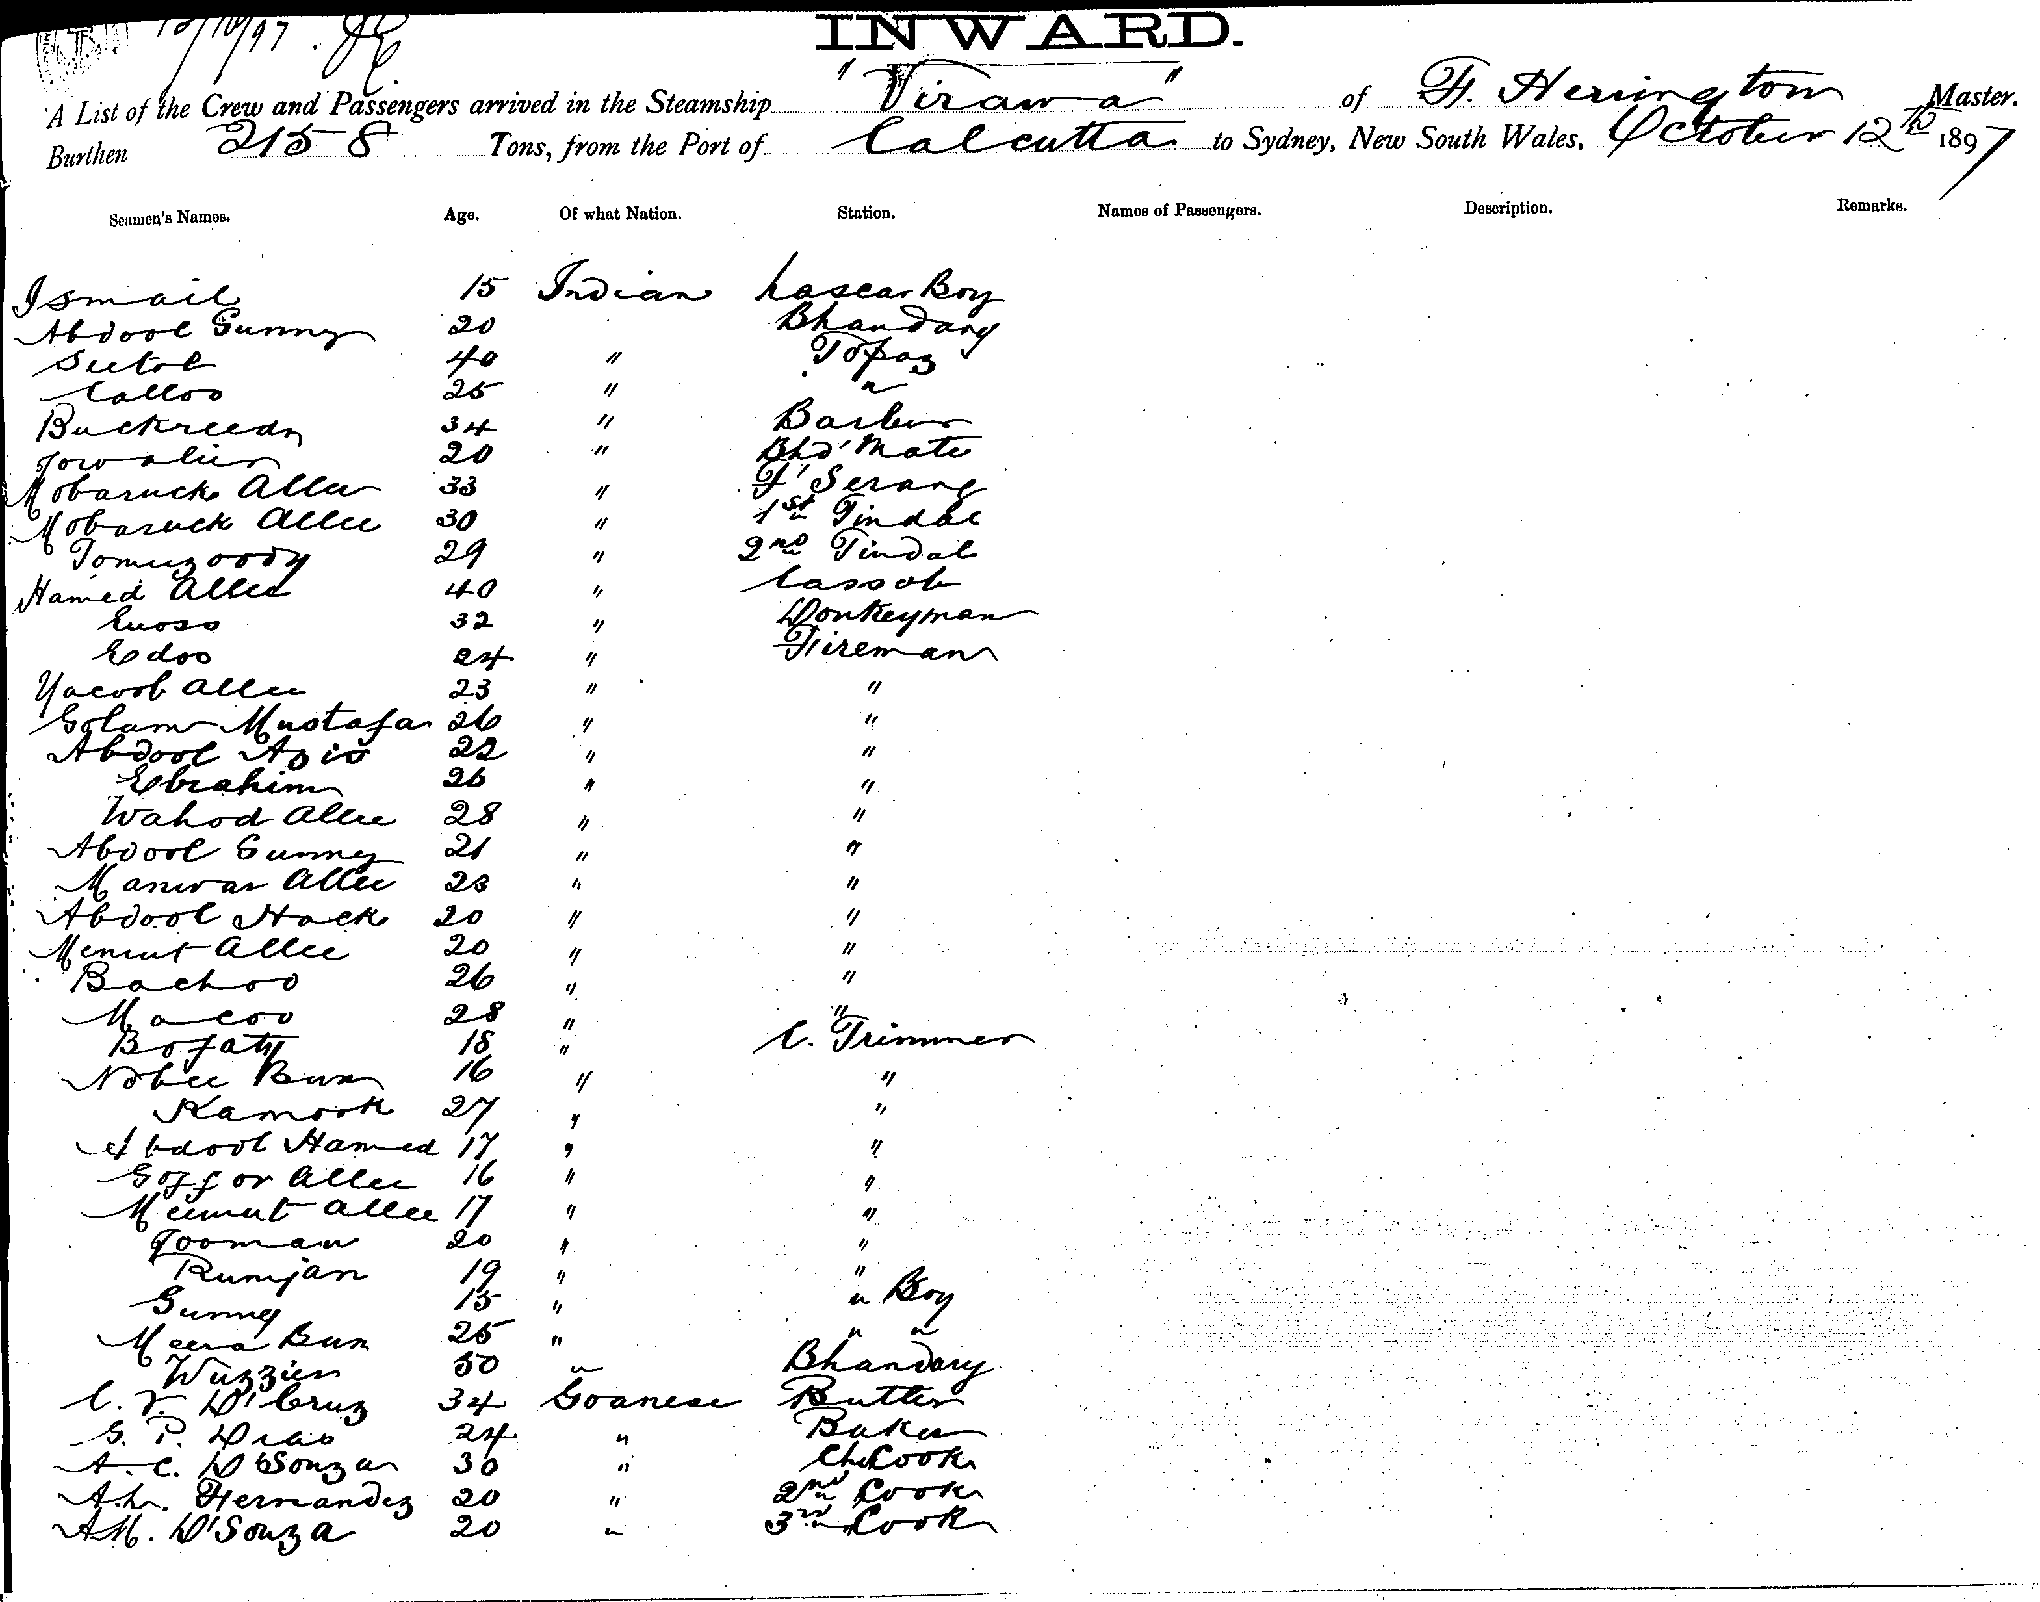 13/10/97.
INWARD.
A List of the Crew and Passengers arrived in the Steamship "Virawa" of F. Herrington Master.
Burthen 2158 Tons, from the Port of Calcutta to Sydney, New South Wales, October 12th 1897
Seamen's Names. Age. Of what Nation. Station. Names of Passengers. Description. Remarks.
Ismail 15 Indian Lascar Boy
Abdool Gunny 20 Bhandary
Seetol 40 " Topaz
Calloo 25 " "
Buckreedy 34 " Barber
20 " Bhd' Mate
Mobaruck Allee 33 " F' Serang
Mobaruck Allee 30 " 1st Tindal
Tomuzoody 29 " 2nd Tindal
Hamed Allee 40 " Cassob
Euoss 32 " Donkeyman
Edoo 24 " Fireman
Yacoob Allee 23 " "
Golam Mustafa 26 " "
Abdool Azis 22 " "
Ebrahim 26 " "
Wahod Allee 28 " "
Abdool Gunny 21 " "
Manwar Allee 23 " "
Abdool Hack 20 " "
Memut Allee 20 " "
Bachoo 26 " "
Macoo 28 " "
Bofaty 18 " C. Trimmer
Nobee Bux 16 " "
Kamook 27 " "
Abdool Hamed 17 " "
Goffor Allee 16 " "
Meemut Allee 17 " "
Jooman 20 " "
Rumjan 19 " "
Gunny 15 " " Boy
Meera Bux 25 " " "
Wuzzier 50 " Bhandary
C. V. D'Cruz 34 Goanese Butler
G. P. Dias 24 " Baker
A. C. D'Souza 30 " Ch. Cook
A. L. Hernandez 20 " 2nd Cook
A M. D'Souza 20 " 3rd Cook